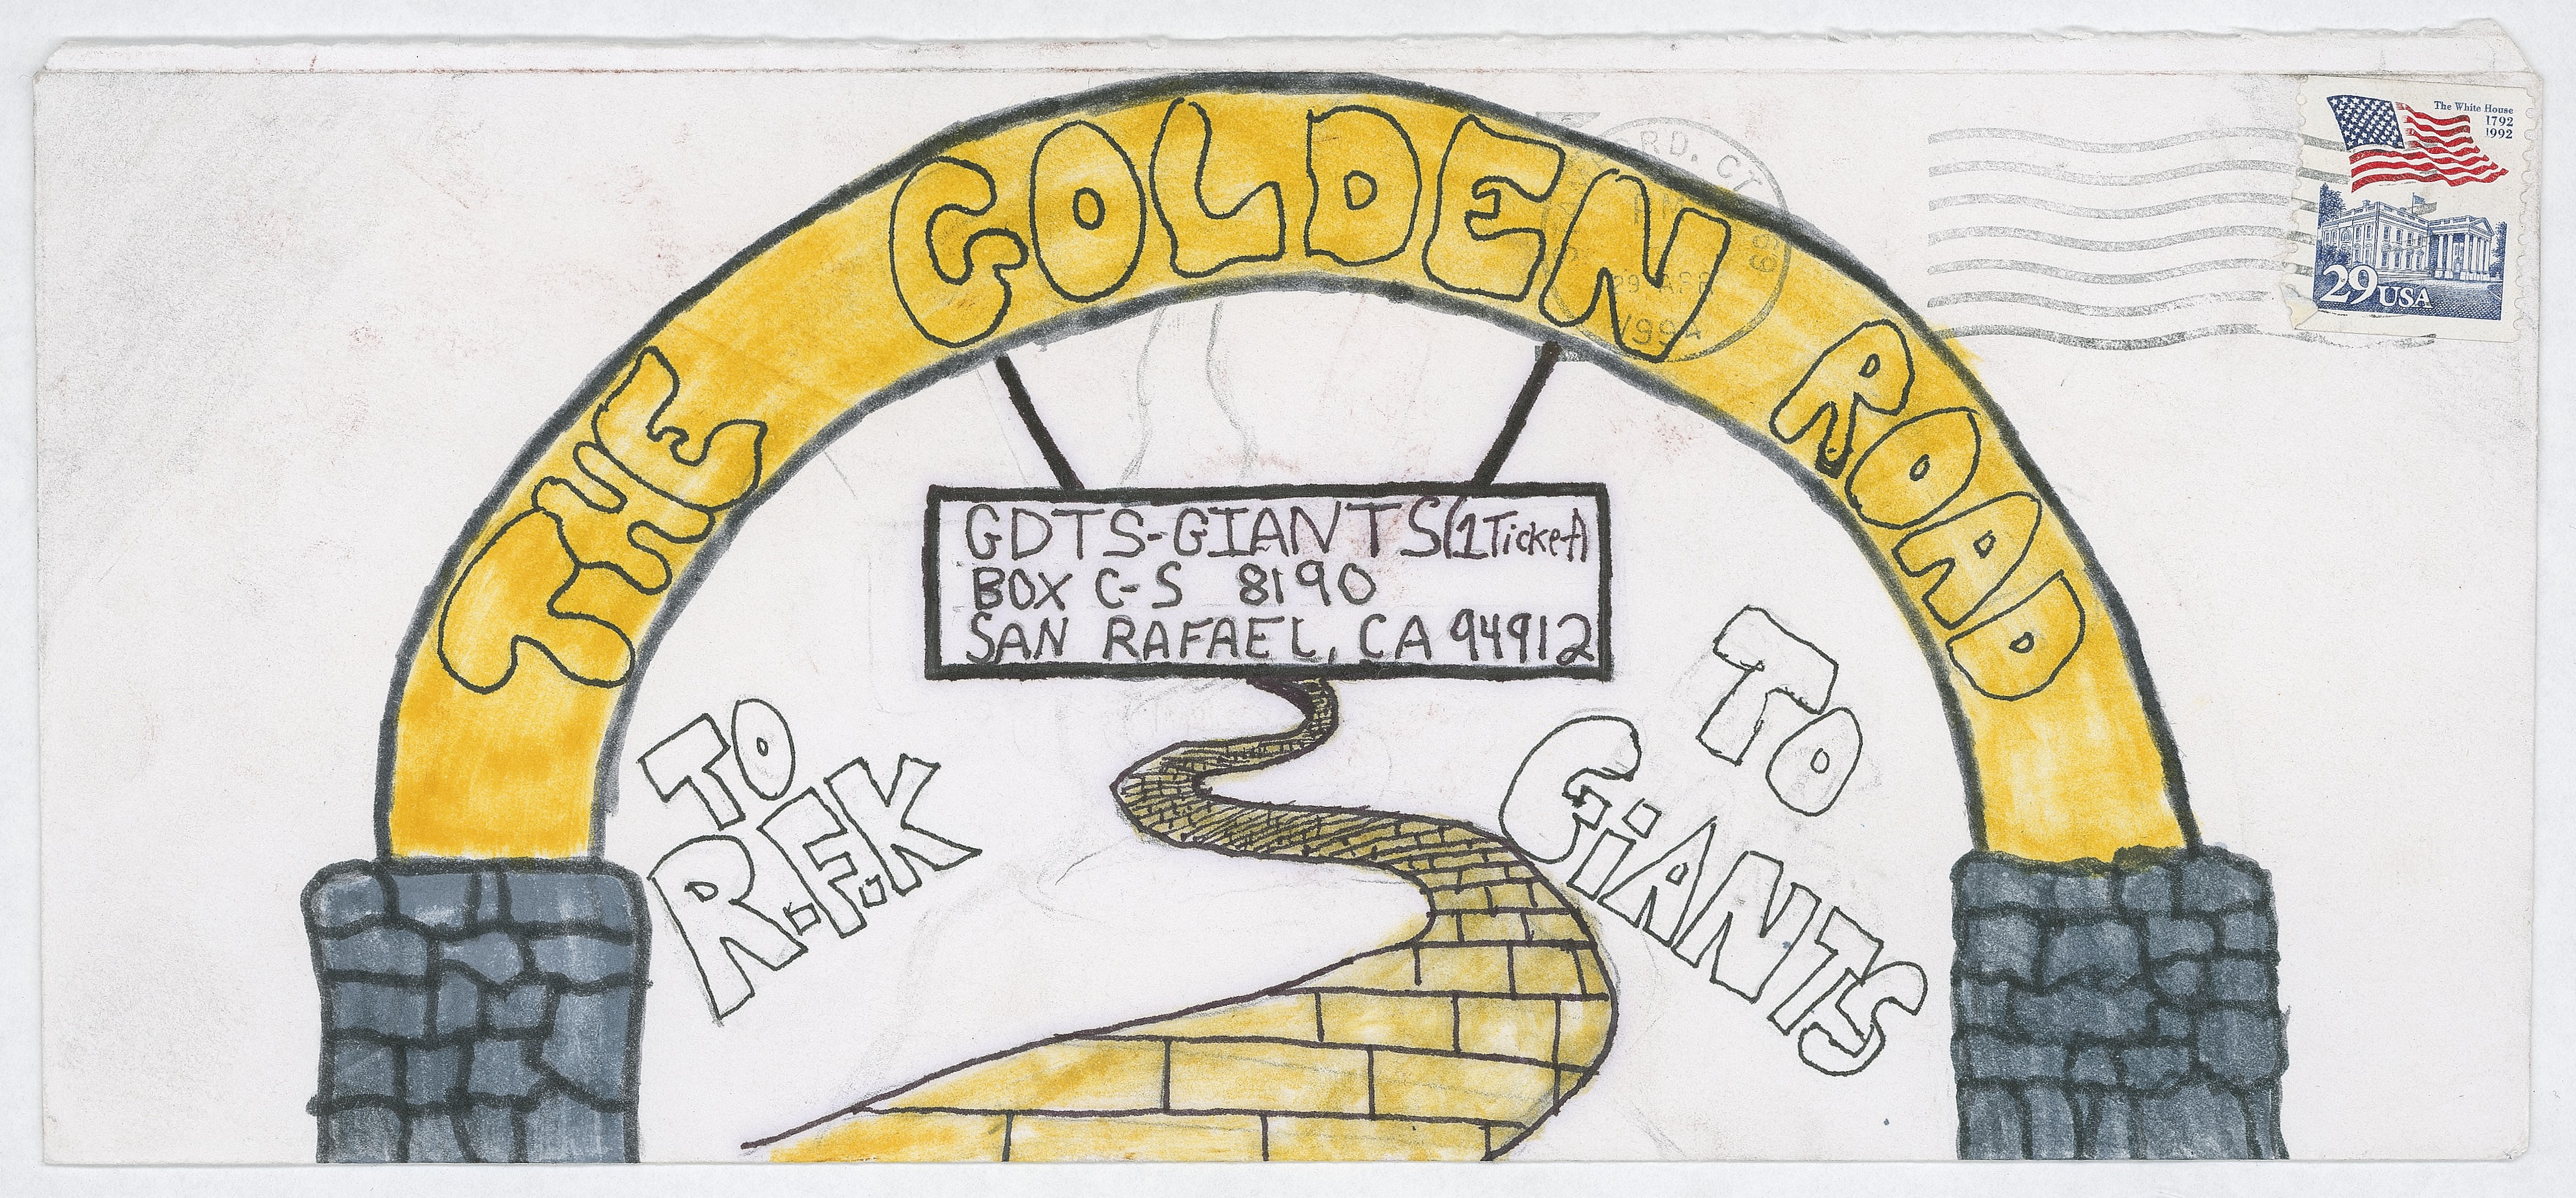 THE GOLDEN ROAD
The White House
1792
1992
29 USA
RD. CT
PM
29 APR
1994
GDTS-GIANTS (1 Ticket)
BOX C-S 8190
SAN RAFAEL, CA 94912
TO
R.F.K
TO
GiANTS